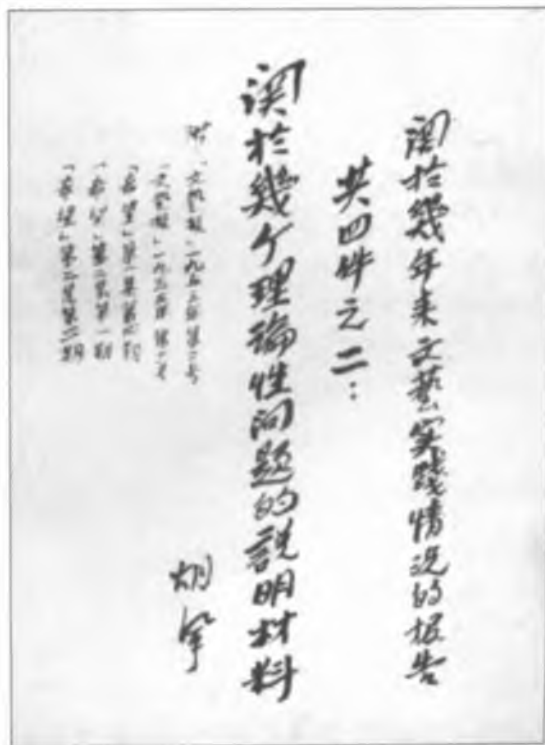 関於幾年来文藝实踐情况的报告
共四件之二：
関於幾个理論性问題的説明材料
附：「文艺报」一九五三年第二号
「文艺报」一九五
「希望」第一集第四期
「希望」第二集第一期
「希望」第二集第二期
胡风